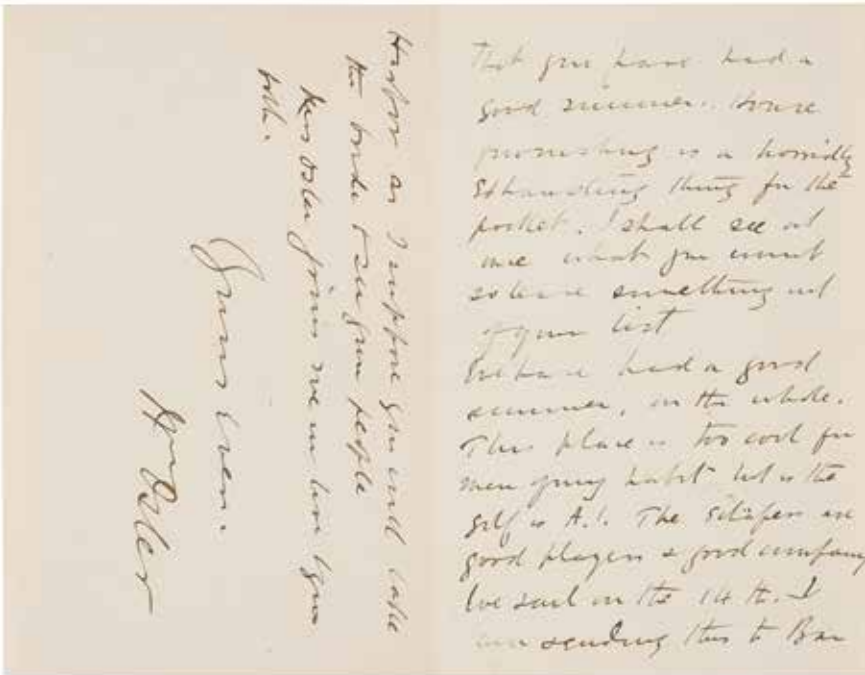 That you have had a
good summer. House
furnishing is a horridly
exhausting thing for the
pocket. I shall see at
once what you want
so leave something out
of your list
We have had a good
summer, on the whole.
This place is too cool for
men of my habit but is the
golf is A.1. The are
good players & good company
We sail on the 14th. I
am sending this to Bar
Harbor as I suppose you will take
the bride to see your people
Mrs Osler joins me in love to you
both.
Yours ever.
Wm Osler